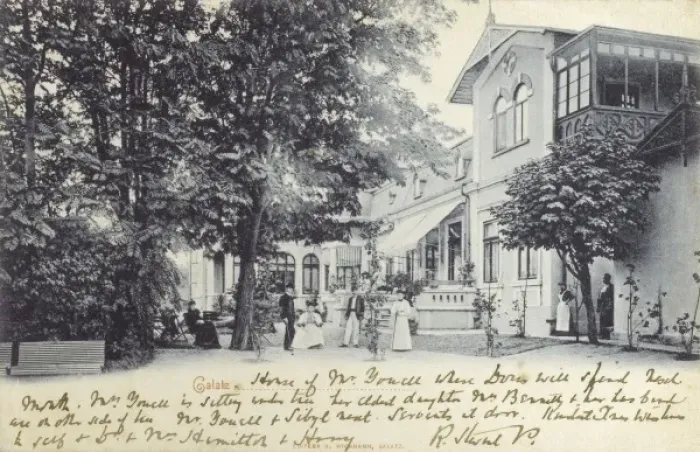 Galatz House of Mr. Youell where Doris will spend next
Month. Mrs. Youell is sitting under tree her eldest daughter Mrs Bennett & her husband
are on other side of tree Mr Youell & Sibyl next. Servants at door. Kindest Xmas wishes
to self & & Mrs Hamilton & Harry R. P.
GALATZ.